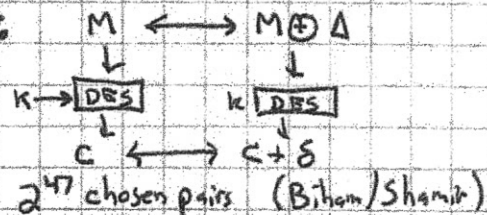 M ⟷ M⊕Δ
↓ ↓
K→ DES k DES
↓ ↓
C ⟷ C+δ
2^47 chosen pairs (Biham/Shamir)